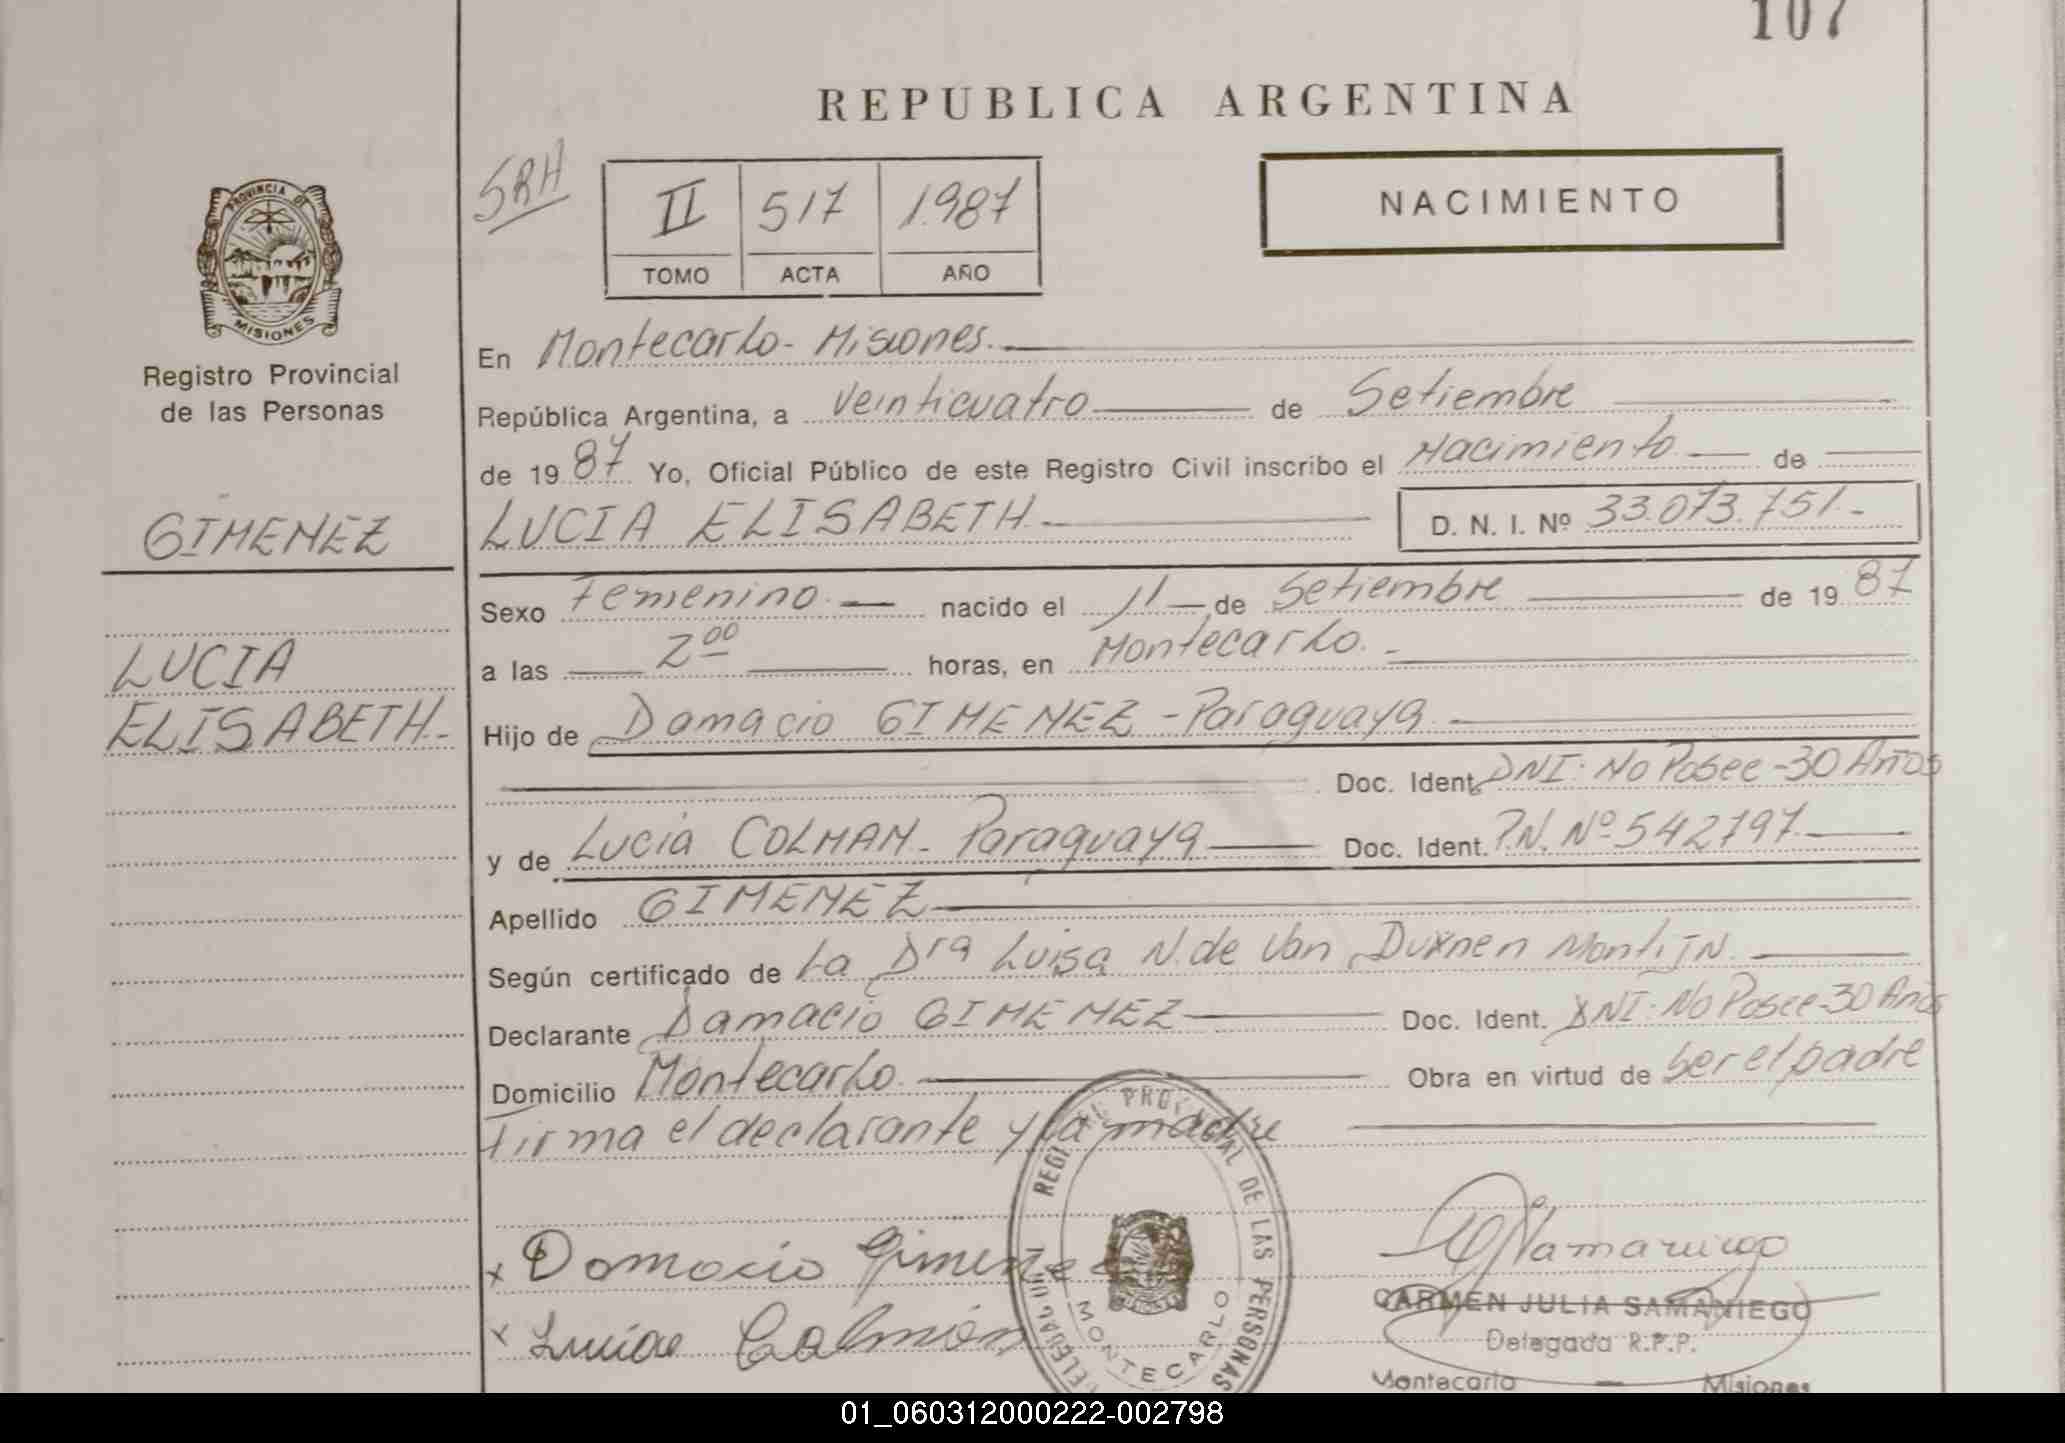 107
REPUBLICA ARGENTINA
SRH
II 517 1.987
TOMO ACTA AÑO
NACIMIENTO
PROVINCIA DE
MISIONES
Registro Provincial
de las Personas
GIMENEZ
LUCIA
ELISABETH.-
En Montecarlo- Misiones.
República Argentina, a veinticuatro de Setiembre
de 19 87 Yo, Oficial Público de este Registro Civil inscribo el Nacimiento de
LUCIA ELISABETH. D. N. I. Nº 33.073.751.-
Sexo Femenino. nacido el 11 de Setiembre de 19 87
a las 2 00 horas, en Montecarlo. -
Hijo de Damacio GIMENEZ - Paraguaya
Doc. Ident. DNI. No Posee - 30 Años
y de Lucia COLMAN - Paraguaya Doc. Ident. P.N. Nº 542797.
Apellido GIMENEZ
Según certificado de La Dra Luisa N. de Van
Declarante Damacio GIMENEZ Doc. Ident. DNI. No Posee - 30 Años
Domicilio Montecarlo. Obra en virtud de ser el padre
Firma el declarante y la madre
REGISTRO PROVINCIAL DE LAS PERSONAS
MONTECARLO
x Domacio Gimenez
x Lucia Colmán
CARMEN JULIA SAMANIEGO
Delegada R.P.P.
Montecarlo — Misiones
01_060312000222-002798